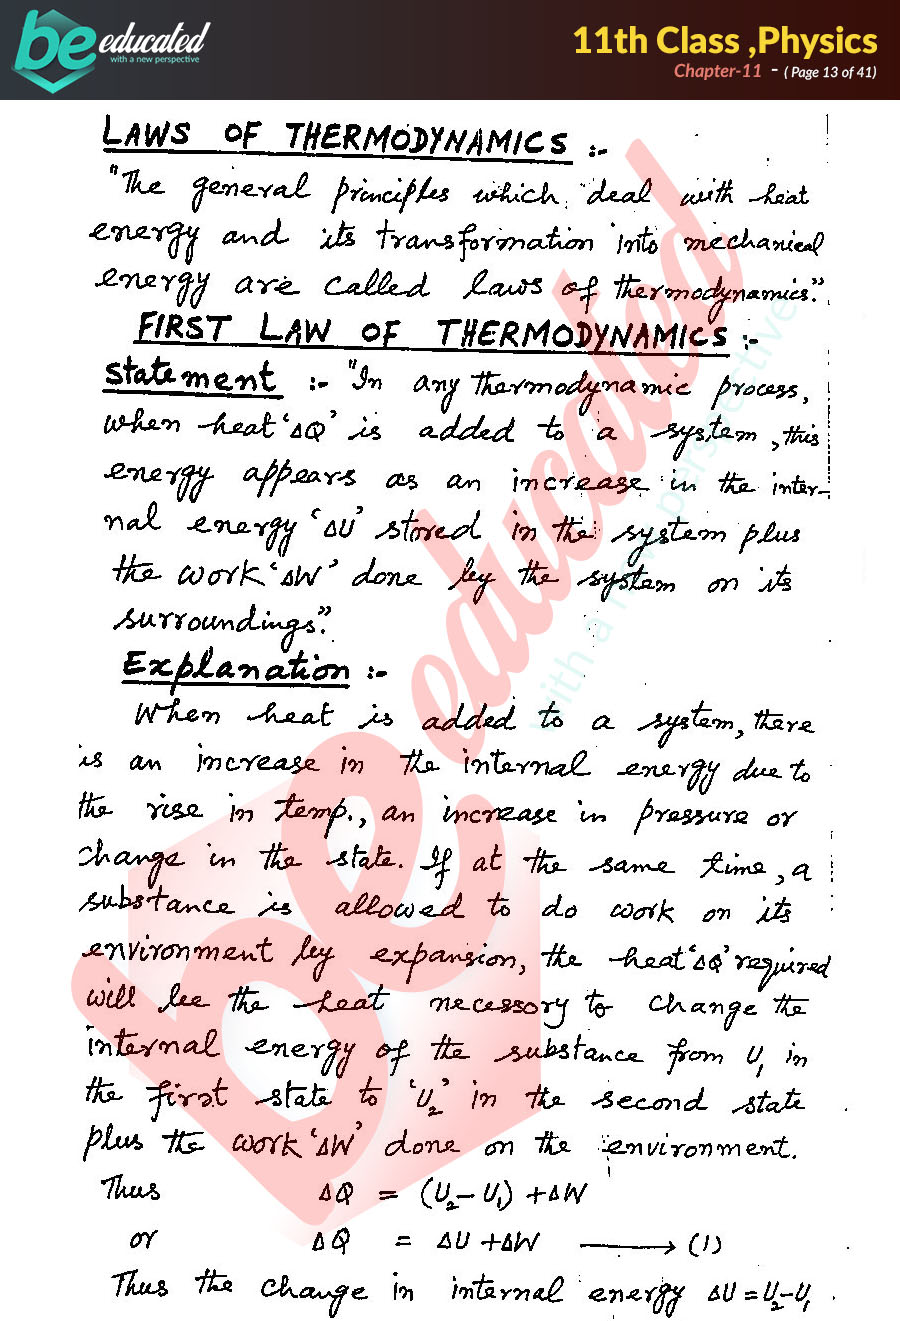 be educated
with a new perspective
11th Class ,Physics
Chapter-11 - ( Page 13 of 41)
LAWS OF THERMODYNAMICS :-
"The general principles which deal with heat
energy and its transformation into mechanical
energy are called laws of thermodynamics."
FIRST LAW OF THERMODYNAMICS :-
Statement :- "In any thermodynamic process,
when heat 'ΔQ' is added to a system, this
energy appears as an increase in the inter-
nal energy 'ΔU' stored in the system plus
the work 'ΔW' done by the system on its
surroundings."
Explanation :-
When heat is added to a system, there
is an increase in the internal energy due to
the rise in temp., an increase in pressure or
change in the state. If at the same time, a
substance is allowed to do work on its
environment by expansion, the heat 'ΔQ' required
will be the heat necessary to change the
internal energy of the substance from U₁ in
the first state to 'U₂' in the second state
plus the work 'ΔW' done on the environment.
Thus ΔQ = (U₂-U₁) + ΔW
or ΔQ = ΔU + ΔW ⟶ (1)
Thus the change in internal energy ΔU = U₂-U₁
be educated
with a new perspective